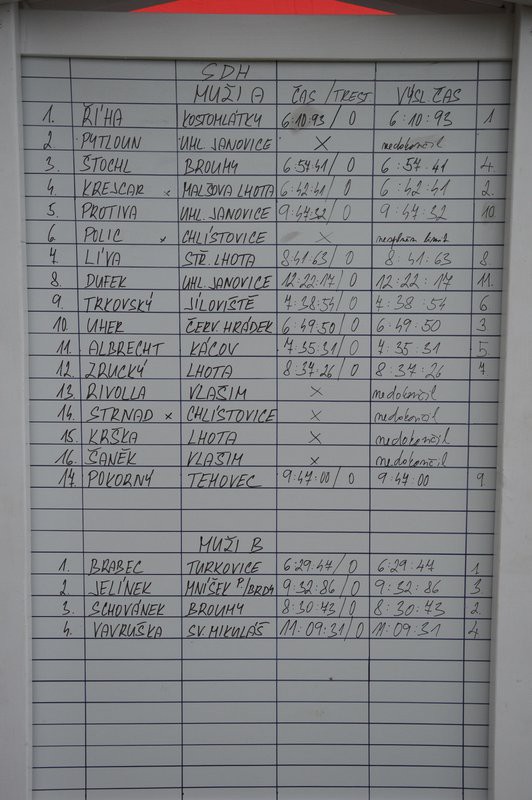 SDH
MUŽI A ČAS / TREST VÝSL. ČAS
1. ŘÍHA KOSTOMLÁTKY 6:10:93 / 0 6:10:93 1
2 PYTLOUN UHL. JANOVICE × nedokončil
3. ŠTOCHL BROUMY 6:57:41 / 0 6:57:41 4.
4. KREJCAR × MALSOVA LHOTA 6:42:41 / 0 6:42:41 2.
5. PROTIVA UHL. JANOVICE 9:47:32 / 0 9:47:32 10
6. POLIC × CHLÍSTOVICE × limit
7. LÍVA STŘ. LHOTA 8:41:63 / 0 8:41:63 8
8. DUFEK UHL. JANOVICE 12:22:17 / 0 12:22:17 11.
9. TRKOVSKÝ JÍLOVIŠTĚ 7:38:54 / 0 7:38:54 6
10. UHER ČERV. HRÁDEK 6:49:50 / 0 6:49:50 3
11. ALBRECHT KÁCOV 7:35:31 / 0 7:35:31 5.
12. ZRUCKÝ LHOTA 8:37:26 / 0 8:37:26 7
13 RIVOLLA VLAŠIM × nedokončil
14. STRNAD × CHLÍSTOVICE × nedokončil
15. KRŠKA LHOTA × nedokončil
16. ŠANĚK VLAŠIM × nedokončil
17. POKORNÝ TEHOVEC 9:47:00 / 0 9:47:00 9.
MUŽI B
1. BRABEC TURKOVICE 6:29:47 / 0 6:29:47 1
2. JELÍNEK MNÍŠEK P/BRDY 9:32:86 / 0 9:32:86 3
3. SCHOVÁNEK BROUMY 8:30:73 / 0 8:30:73 2
4. VAVRUŠKA SV. MIKULÁŠ 11:09:31 / 0 11:09:31 4